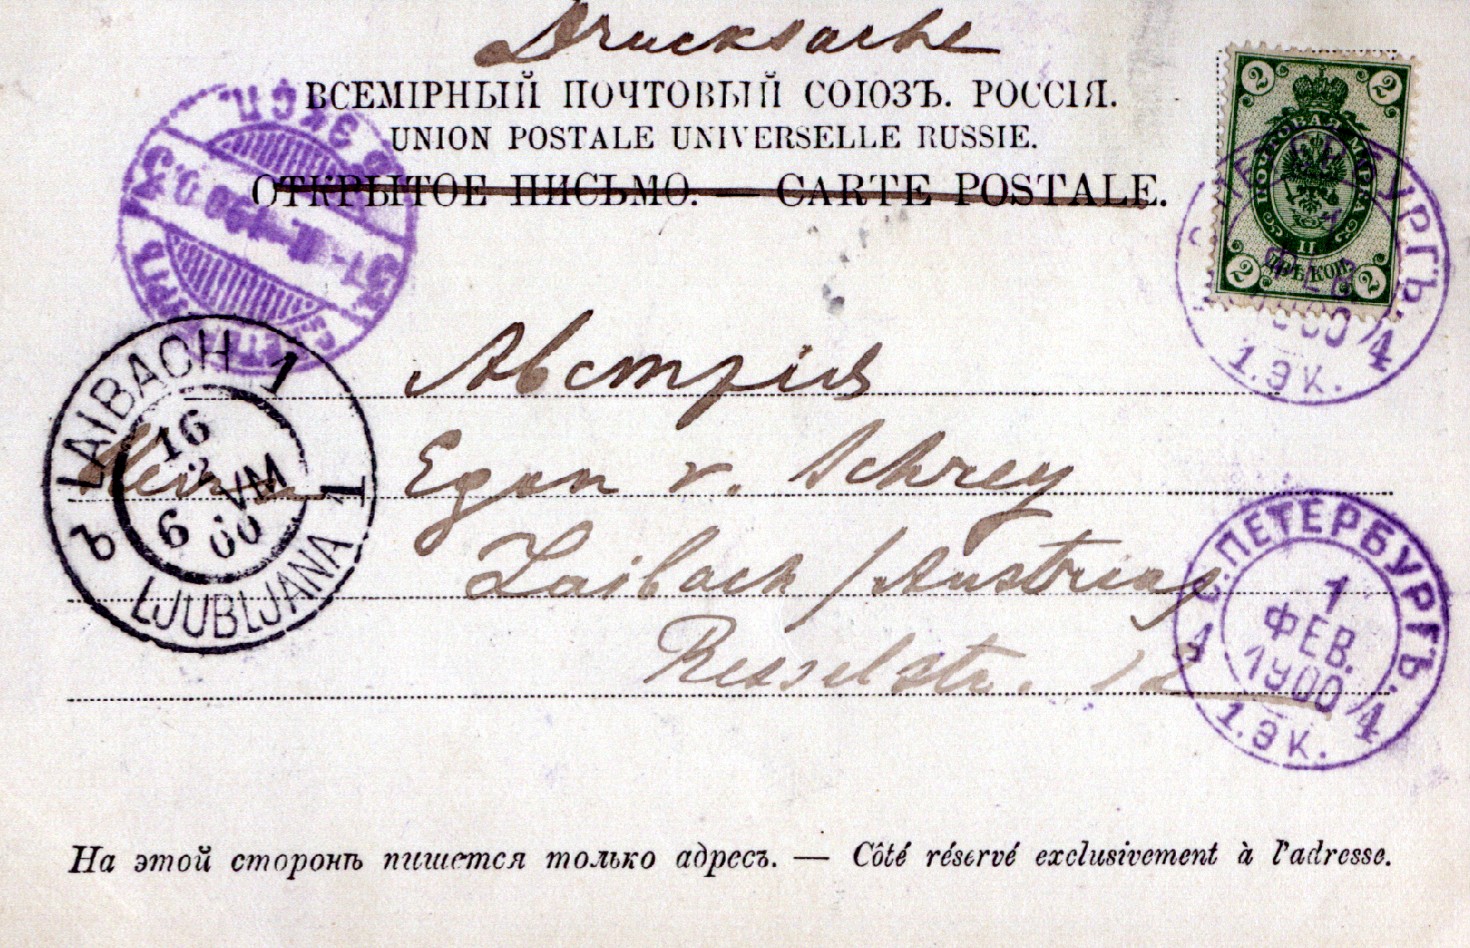 Drucksache
ВСЕМІРНЫЙ ПОЧТОВЫЙ СОЮЗЪ. РОССІЯ.
UNION POSTALE UNIVERSELLE RUSSIE.
ОТКРЫТОЕ ПИСЬМО. — CARTE POSTALE.
2 2
ПОЧТОВАЯ МАРКА
II
ДВѢ КОП.
2 2
4
1. ЭК.
Австрія
LAIBACH 1
16
2
6 VM
00
LJUBLJANA 1
b
Herrn Egon v. Schrey
Laibach / Austria
Resselstr. 12
С. ПЕТЕРБУРГЪ.
1
ФЕВ.
1900
1 4
1. ЭК.
На этой сторонѣ пишется только адресъ. — Côté réservé exclusivement à l'adresse.